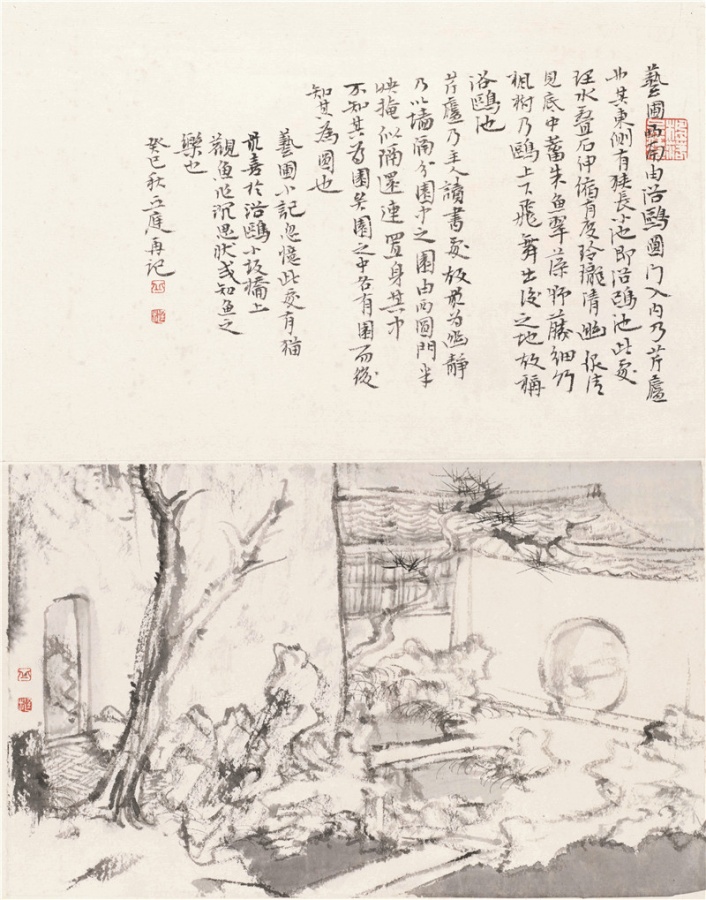 藝圃西南由浴鷗圓門入内乃芹廬
也其東側有狹長小池即浴鷗池此處
理水疊石有度玲瓏清幽清
見底中蓄朱魚翠藻野藤細竹
楓樹乃鷗上下飛舞出没之地故稱
浴鷗池
芹廬乃主人讀書處故最为幽静
乃以墙隔分園中之園由西圓門半
映掩似隔還連置身其中
不知其为園矣園之中各有園而後
知其為園也
藝圃小記忽憶此處有猫
最喜於浴鷗小板橋上
觀魚作沉思狀或知魚之
樂也
癸巳秋庭再記